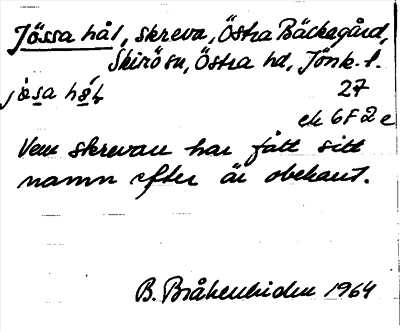 Jössa hål, skreva, Östra Bäckagård,
Skirö sn, Östra hd, Jönk. l.
jösa hål
27
ek 6F2e
Vem skrevan har fått sitt
namn efter är obekant.
B. Bråkenhielm 1964